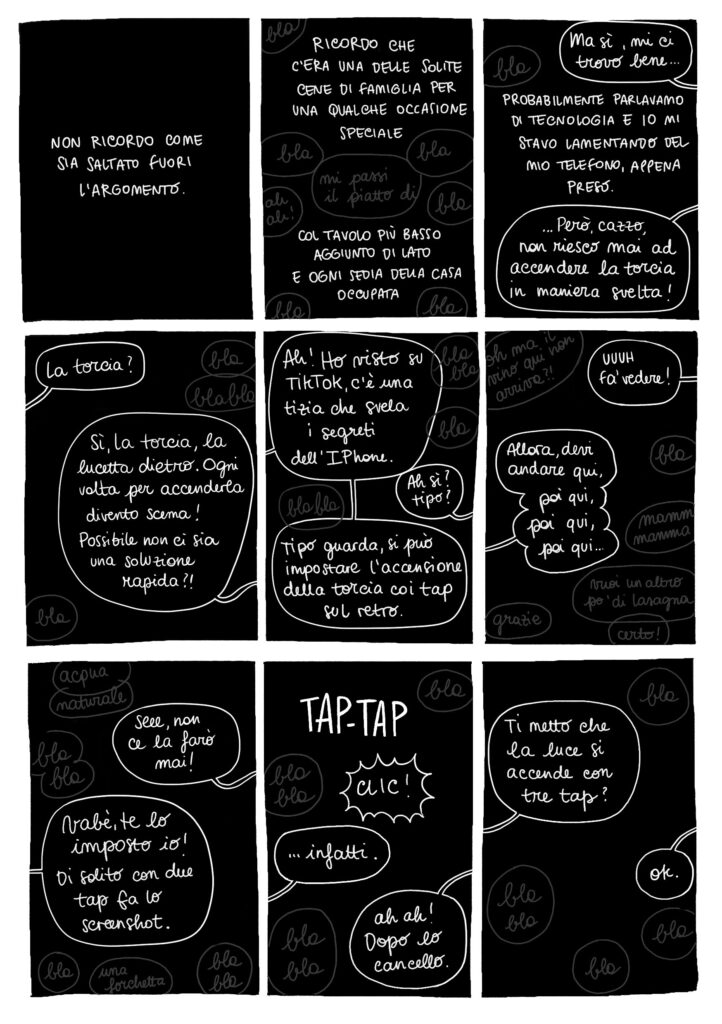 NON RICORDO COME
SIA SALTATO FUORI
L'ARGOMENTO.
bla
RICORDO CHE
C'ERA UNA DELLE SOLITE
CENE DI FAMIGLIA PER
UNA QUALCHE OCCASIONE
SPECIALE
bla
bla
mi passi
il piatto di
ah
ah!
bla
COL TAVOLO PIÙ BASSO
AGGIUNTO DI LATO
E OGNI SEDIA DELLA CASA
OCCUPATA
bla
bla
Ma sì, mi ci
trovo bene...
bla
PROBABILMENTE PARLAVAMO
DI TECNOLOGIA E IO MI
STAVO LAMENTANDO DEL
MIO TELEFONO, APPENA
PRESO.
...Però, cazzo,
non riesco mai ad
accendere la torcia
in maniera svelta!
La torcia?
bla
bla bla
Sì, la torcia, la
lucetta dietro. Ogni
volta per accenderla
divento scema!
Possibile non ci sia
una soluzione
rapida?!
bla
Ah! Ho visto su
TikTok, c'è una
tizia che svela
i segreti
dell'IPhone.
bla
bla
bla
Ah sì?
tipo?
bla bla
Tipo guarda, si può
impostare l'accensione
della torcia coi tap
sul retro.
oh ma il
vino qui non
arriva?!
UUUH
fa' vedere!
Allora, devi
andare qui,
poi qui,
poi qui,
poi qui...
bla
mamma
mamma
vuoi un altro
po' di lasagna
grazie
certo!
acqua
naturale
Seee, non
ce la farò
mai!
bla
bla
Vabè, te lo
imposto io!
Di solito con due
tap fa lo
screenshot.
bla
una
forchetta
bla
bla
bla
TAP-TAP
bla
bla
CLIC!
...infatti.
ah ah!
Dopo lo
cancello.
bla
bla
bla
Ti metto che
la luce si
accende con
tre tap?
ok.
bla
bla
bla
bla